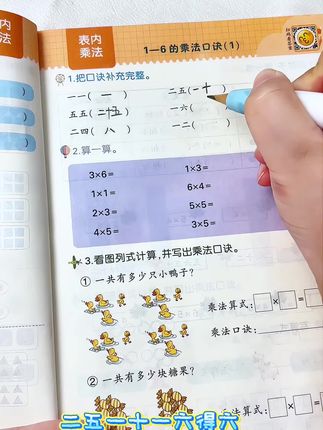 表内
乘法
1—6的乘法口诀(1)
1.把口诀补充完整。
一一( 一 ) 二五( 一十
五五(二十五) 一六(
二四( 八 ) 一二(
2.算一算。
3×6= 1×3=
1×1= 6×4=
2×3= 5×5=
4×5= 3×5=
3.看图列式计算,并写出乘法口诀。
① 一共有多少只小鸭子?
乘法算式:□×□=
乘法口诀:
② 一共有多少块糖果?
乘法算式:□×□=
二五一十一六得六